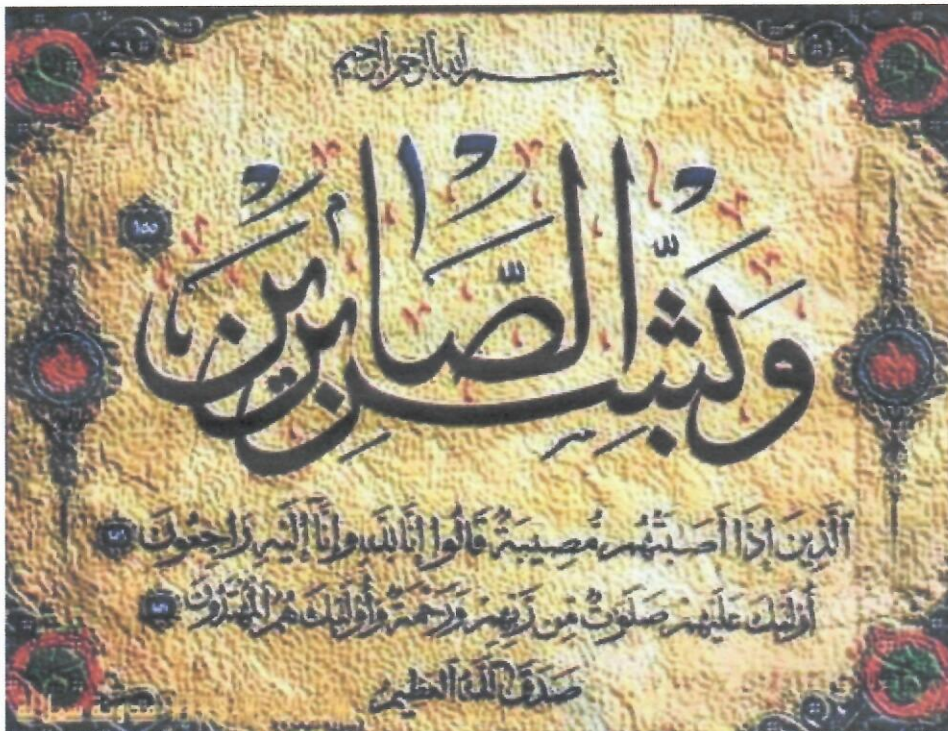 بسم الله الرحمن الرحيم
وَبَشِّرِ الصَّابِرِينَ ١٥٥
ٱلَّذِينَ إِذَآ أَصَـٰبَتْهُم مُّصِيبَةٌ قَالُوٓا۟ إِنَّا لِلَّهِ وَإِنَّآ إِلَيْهِ رَٰجِعُونَ
أُو۟لَـٰٓئِكَ عَلَيْهِمْ صَلَوَٰتٌ مِّن رَّبِّهِمْ وَرَحْمَةٌ وَأُو۟لَـٰٓئِكَ هُمُ ٱلْمُهْتَدُونَ
صَدَقَ اللّٰهُ العَظِيم